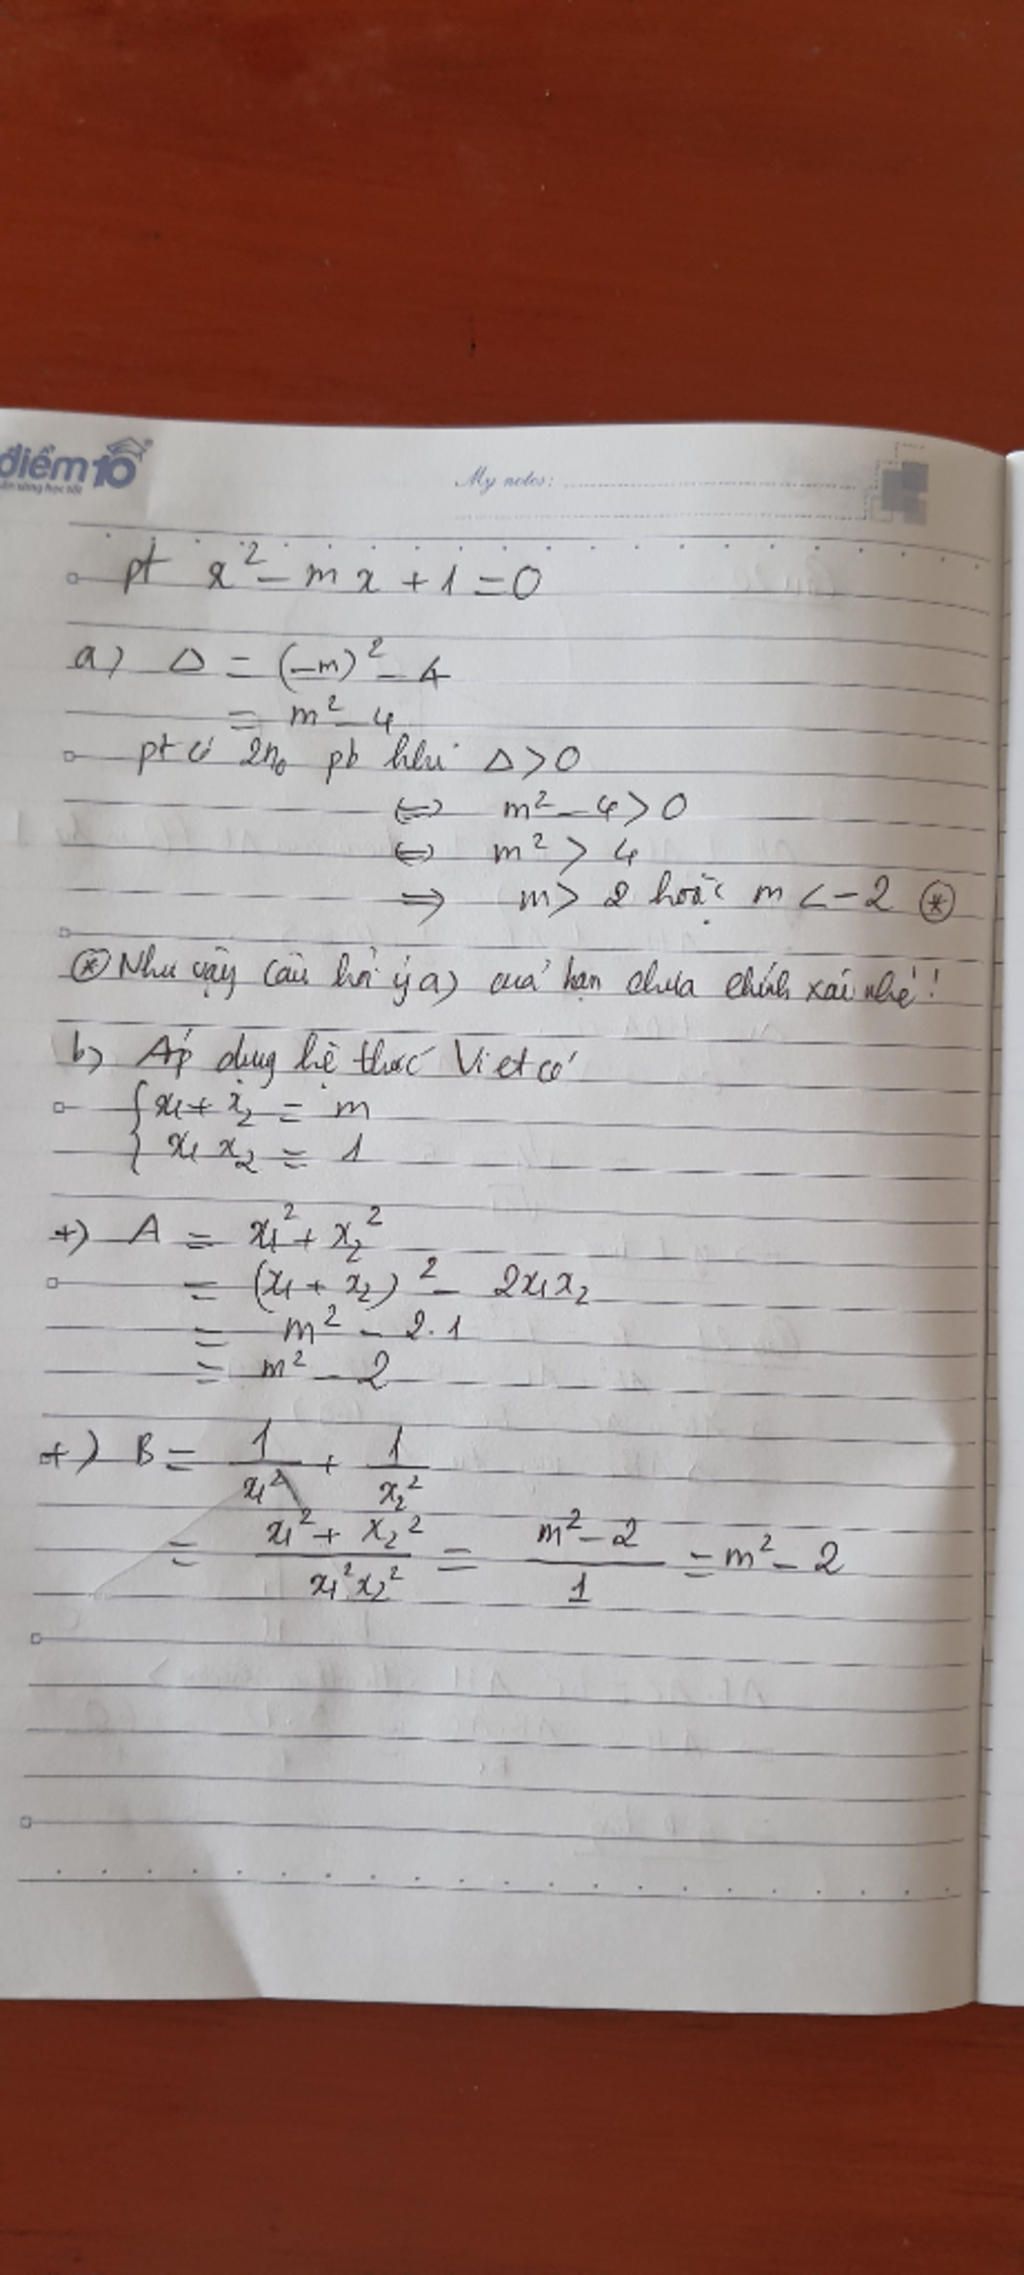 điểm 10
My notes:
pt x² - mx + 1 = 0
a) Δ = (-m)² - 4
= m² - 4
pt có 2n₀ pb khi Δ > 0
⇔ m² - 4 > 0
⇔ m² > 4
⇒ m > 2 hoặc m < -2 (*)
(*) Như vậy câu hỏi ý a) của bạn chưa chính xác nhé!
b) Áp dụng hệ thức Viet có
{ x₁ + x₂ = m
x₁ x₂ = 1
+) A = x₁² + x₂²
= (x₁ + x₂)² - 2x₁x₂
= m² - 2.1
= m² - 2
+) B = 1/x₁² + 1/x₂²
= (x₁² + x₂²)/(x₁²x₂²) = (m² - 2)/1 = m² - 2